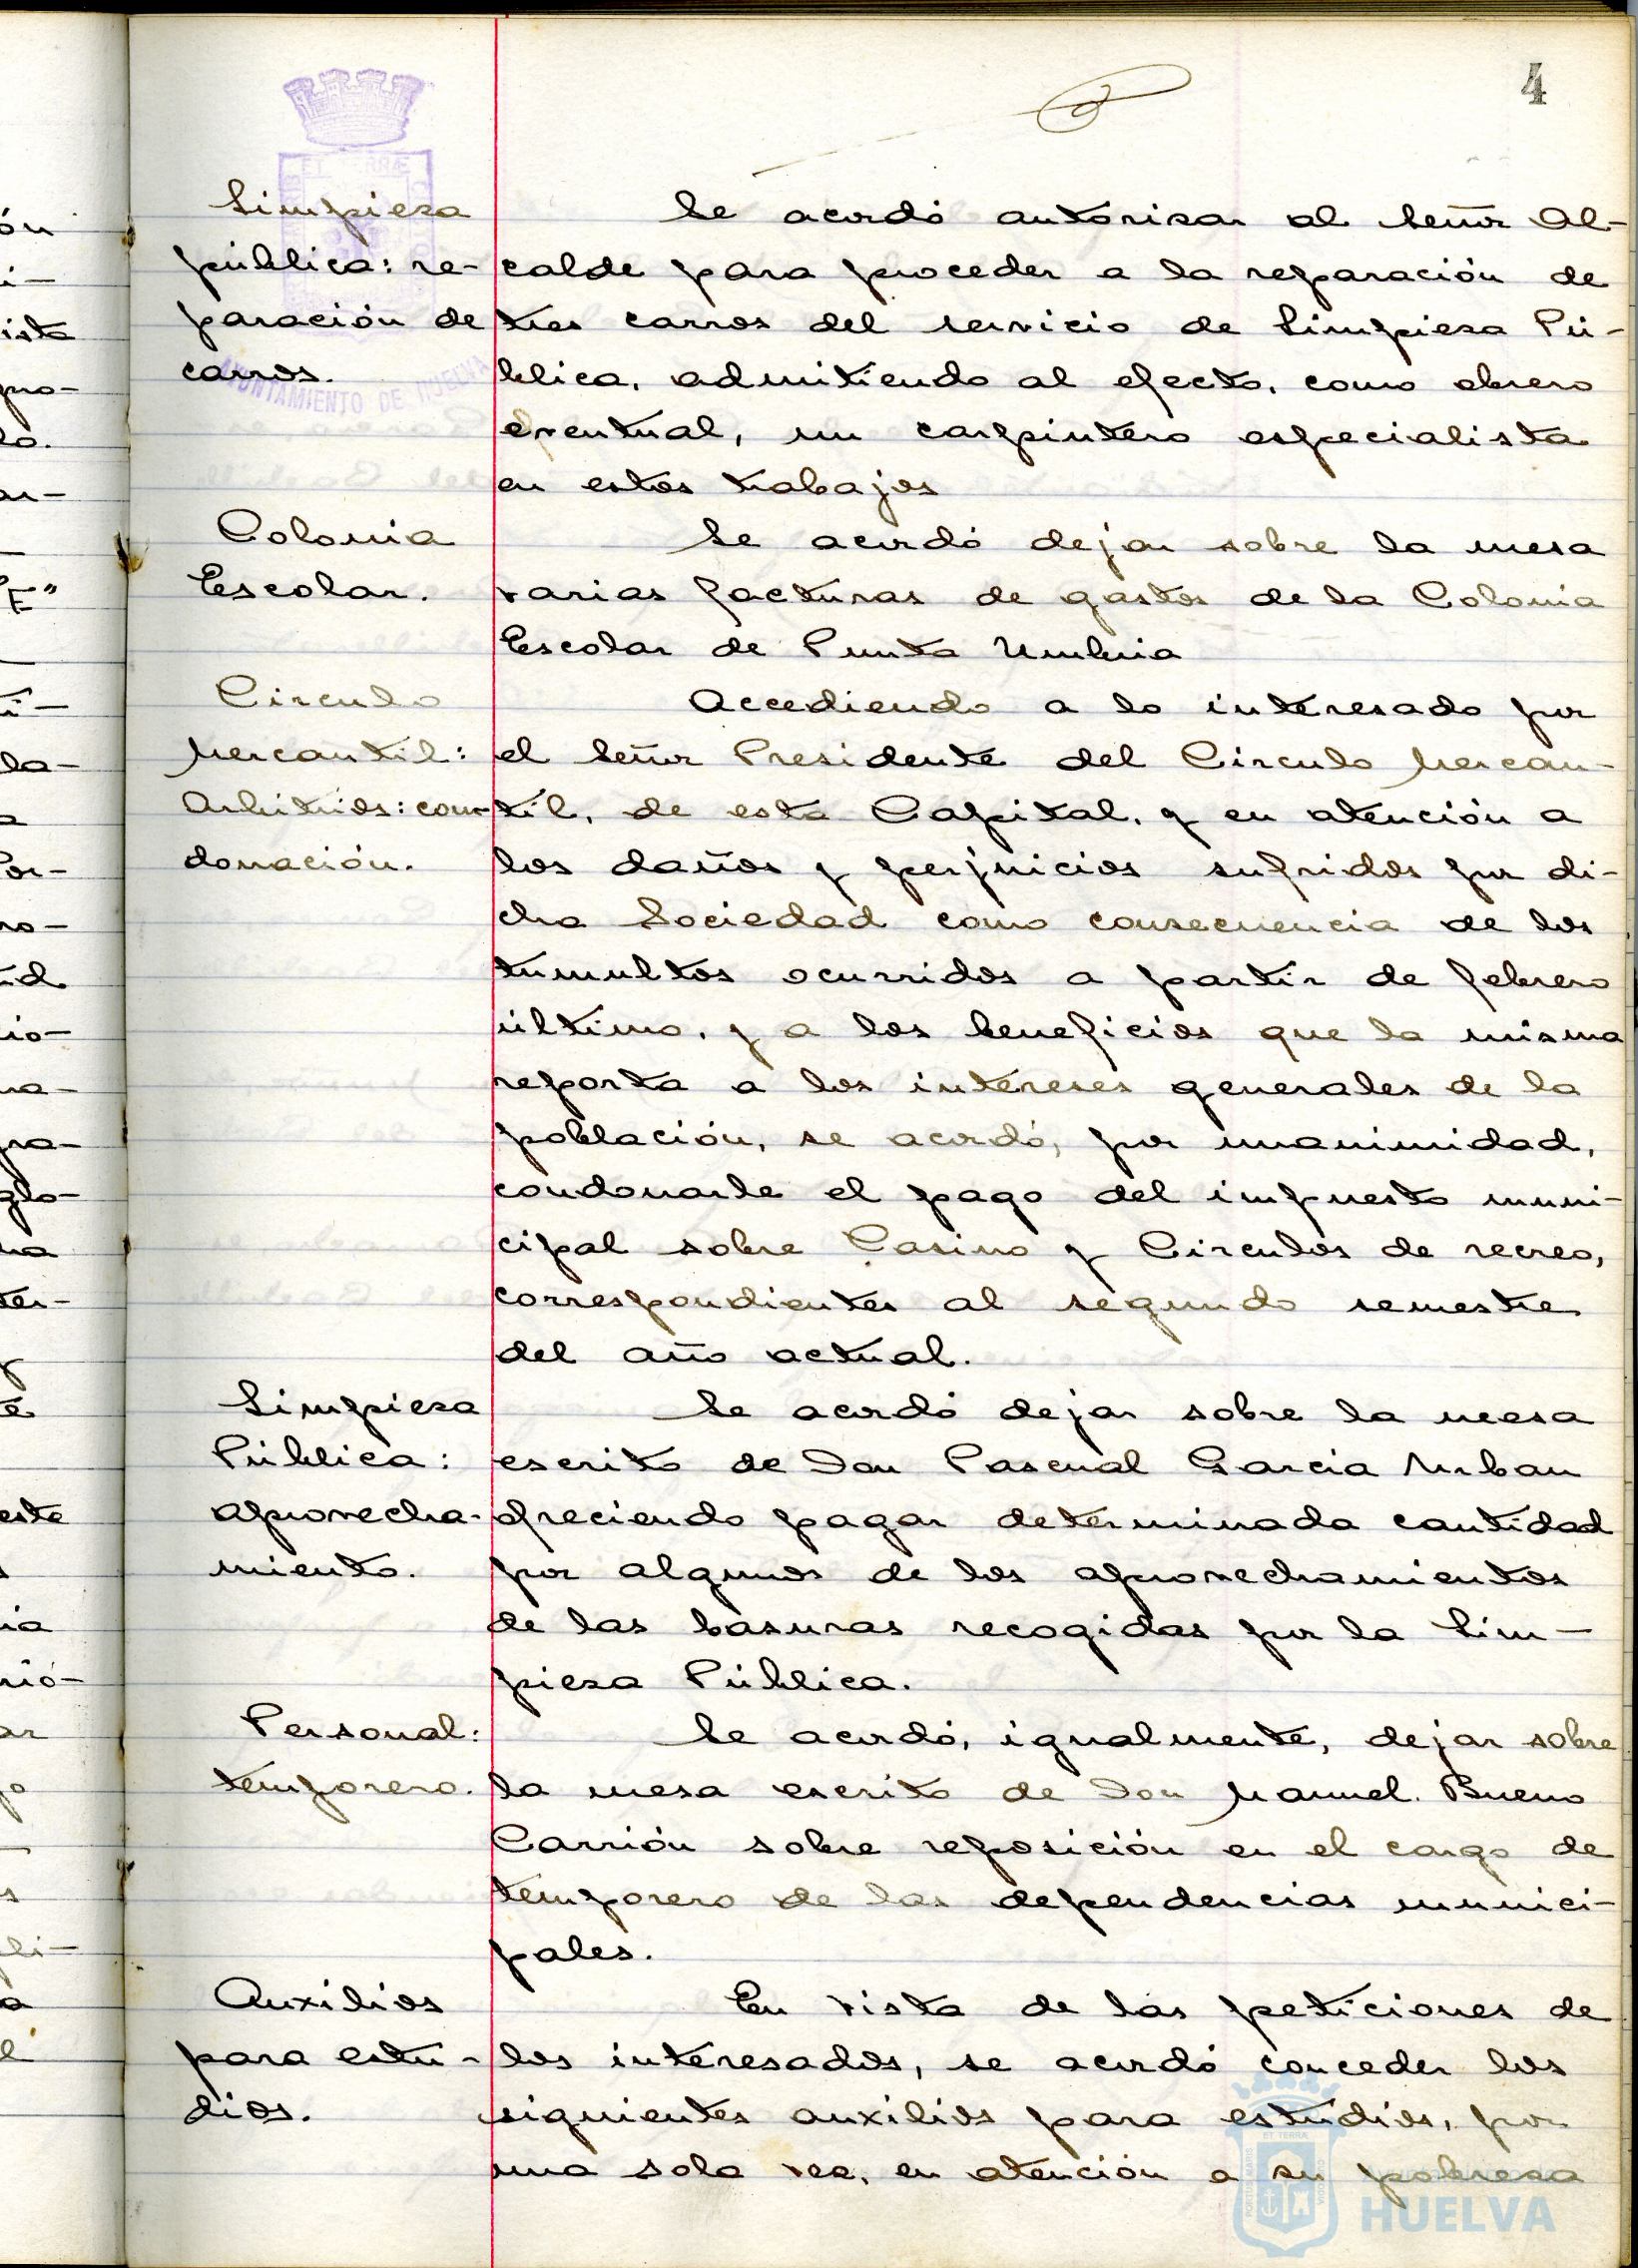 4
Limpieza
pública: re-
paración de
carros.
Se acordó autorizar al Señor Al-
calde para proceder a la reparación de
tres carros del servicio de Limpieza Pú-
blica, admitiendo al efecto, como obrero
eventual, un carpintero especialista
en estos trabajos
Colonia
Escolar.
Se acordó dejar sobre la mesa
varias facturas de gastos de la Colonia
Escolar de Punta Umbria
Circulo
Mercantil:
Arbitrios: con-
donación.
Accediendo a lo interesado por
el Señor Presidente del Circulo Mercan-
til, de esta Capital, y en atención a
los daños y perjuicios sufridos por di-
cha Sociedad como consecuencia de los
tumultos ocurridos a partir de febrero
último, y a los beneficios que la misma
reporta a los intereses generales de la
población, se acordó, por unanimidad,
condonarle el pago del impuesto muni-
cipal sobre Casino y Circulos de recreo,
correspondientes al segundo semestre
del año actual.
Limpieza
Pública:
aprovecha-
miento.
Se acordó dejar sobre la mesa
escrito de Don Pascual Garcia Urban
ofreciendo pagar determinada cantidad
por algunos de los aprovechamientos
de las basuras recogidas por la Lim-
pieza Pública.
Personal:
temporero.
Se acordó, igualmente, dejar sobre
la mesa escrito de Don Manuel Bueno
Carrión sobre reposición en el cargo de
temporero de las dependencias munici-
pales.
Auxilios
para estu-
dios.
En vista de las peticiones de
los interesados, se acordó conceder los
siguientes auxilios para estudios, por
una sola vez, en atención a su pobreza
AYUNTAMIENTO DE HUELVA
HUELVA